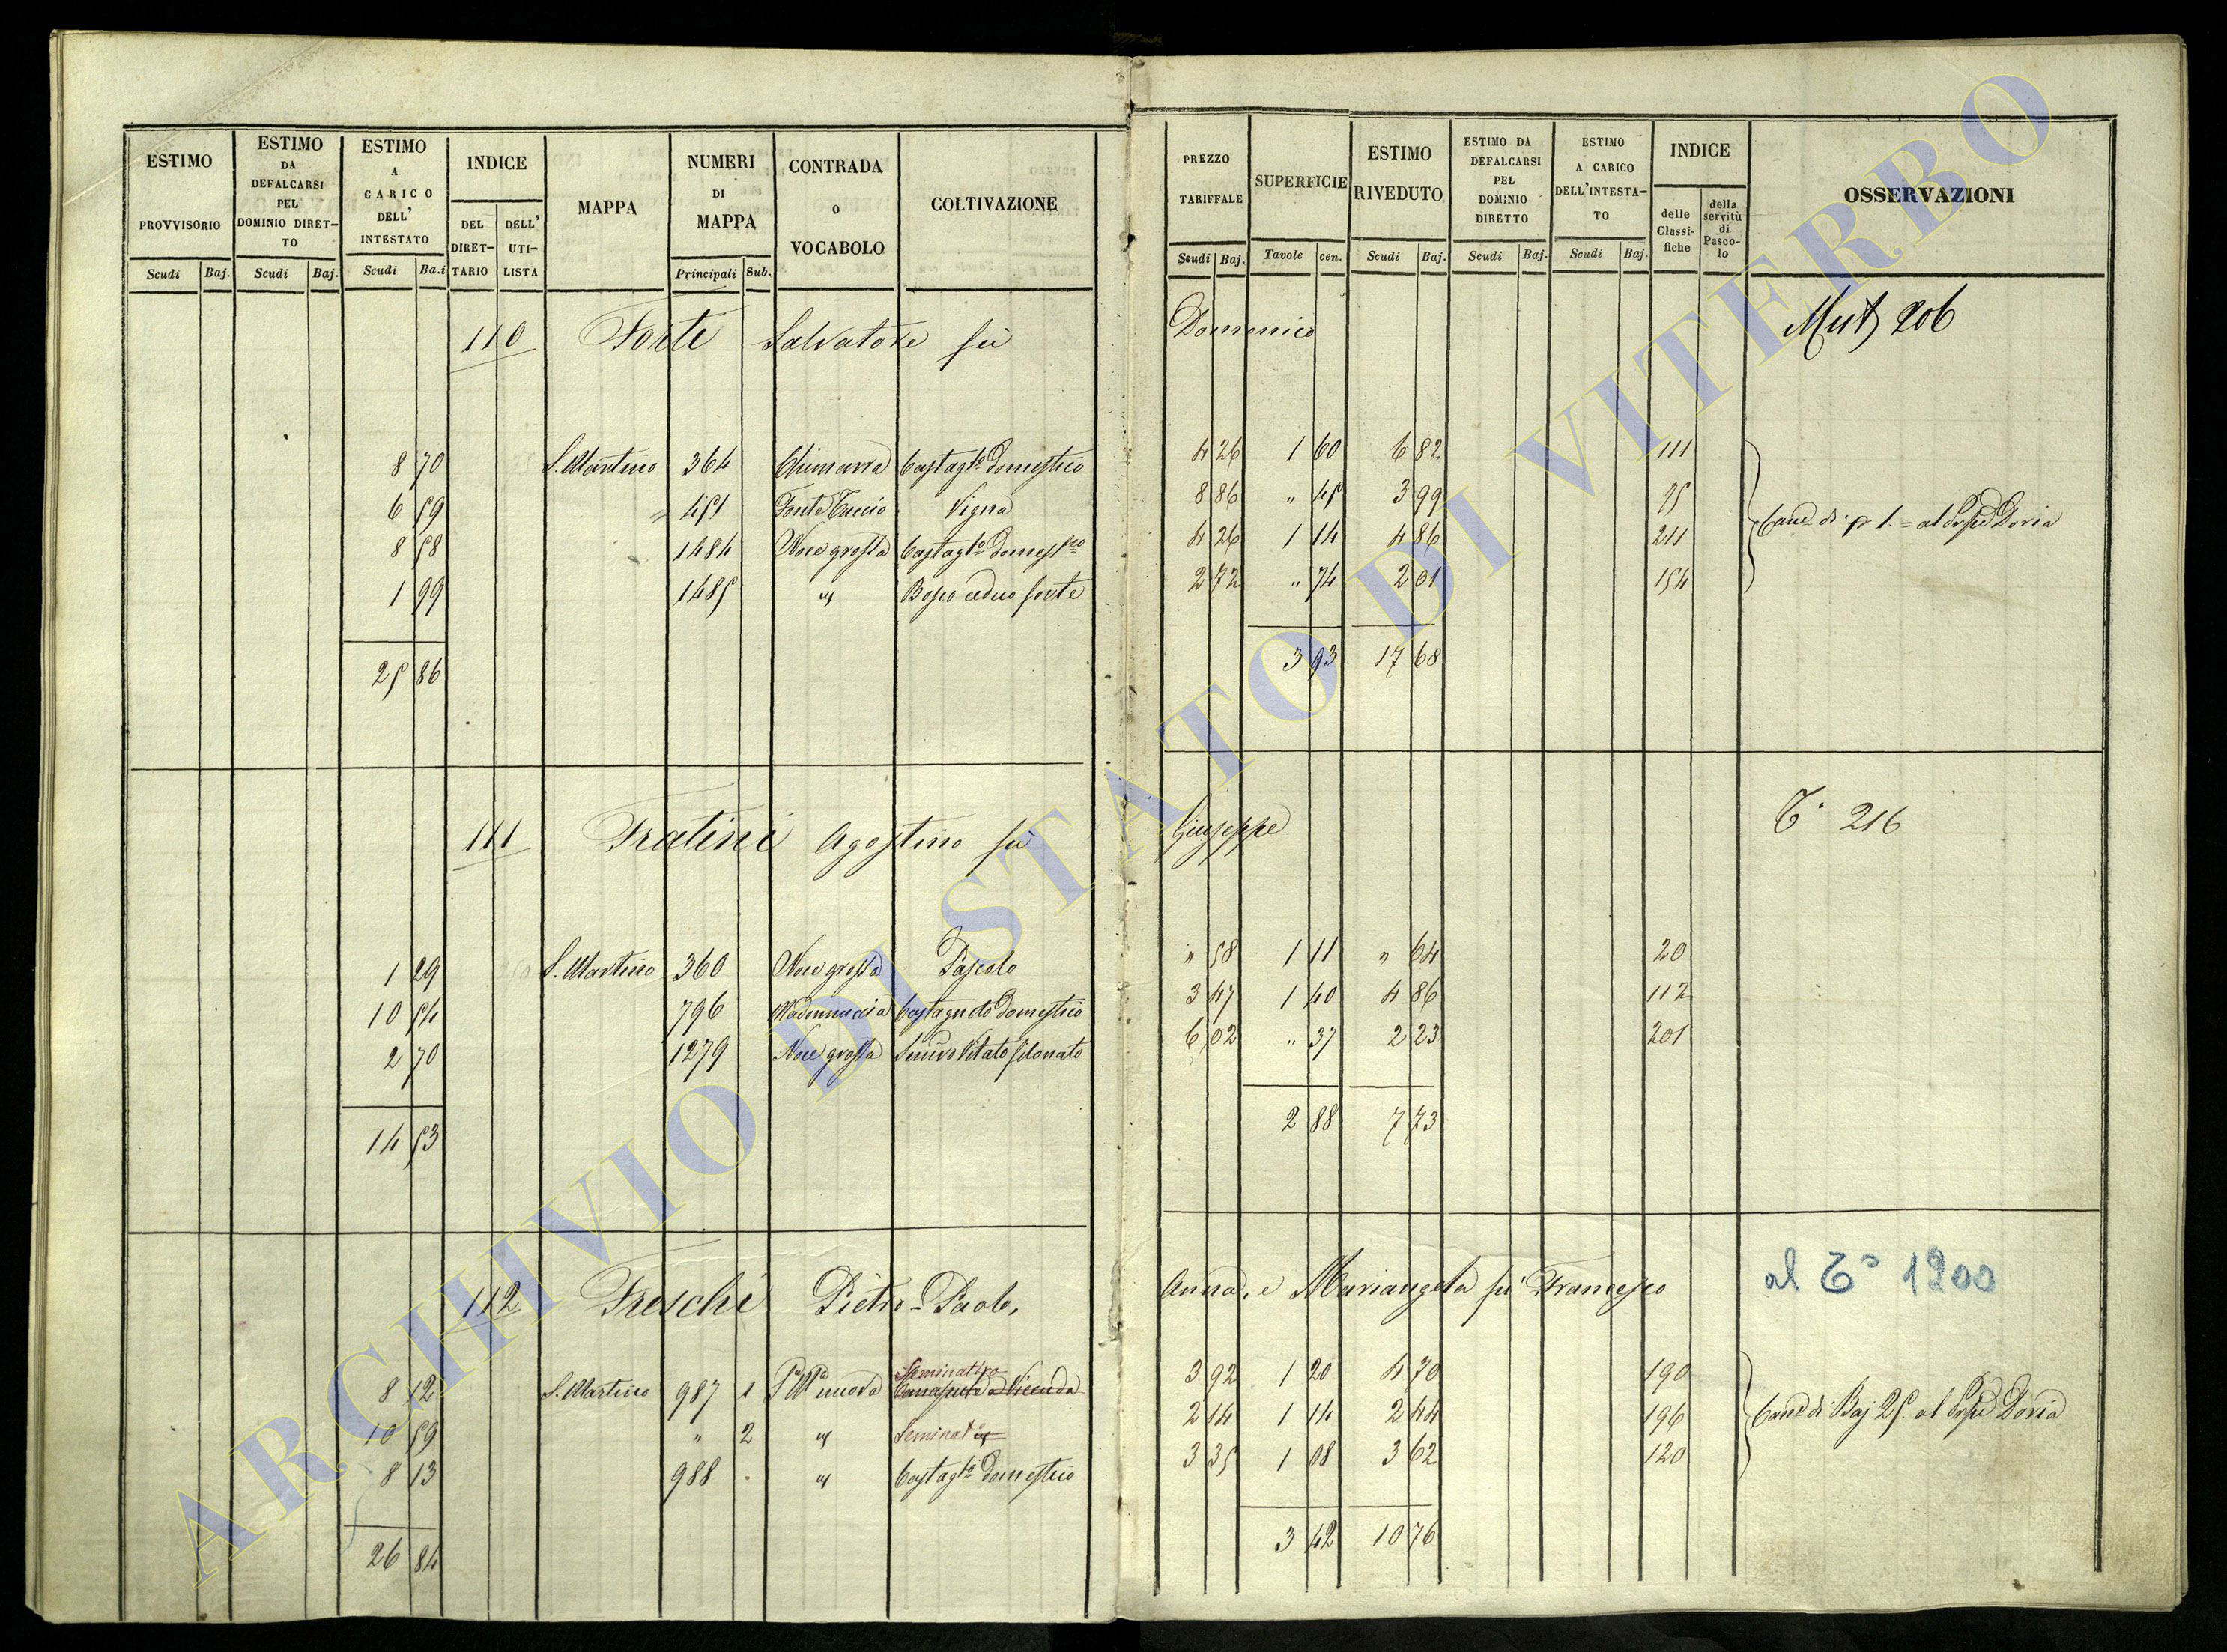 ESTIMO PROVVISORIO Scudi Baj.
ESTIMO DA DEFALCARSI PEL DOMINIO DIRET-TO Scudi Baj.
ESTIMO A CARICO DELL' INTESTATO Scudi Ba.i
INDICE DEL DIRET-TARIO DELL' UTI-LISTA
MAPPA
NUMERI DI MAPPA Principali Sub.
CONTRADA o VOCABOLO
COLTIVAZIONE
PREZZO TARIFFALE Scudi Baj.
SUPERFICIE Tavole cen.
ESTIMO RIVEDUTO Scudi Baj.
ESTIMO DA DEFALCARSI PEL DOMINIO DIRETTO Scudi Baj.
ESTIMO A CARICO DELL'INTESTA-TO Scudi Baj.
INDICE delle Classi-fiche della servitù di Pasco-lo
OSSERVAZIONI
110 Forti Salvatore fù Domenico Mut 206
8 70 S. Martino 364 Castagto domestico 4 26 1 60 6 82 111
6 59 " 451 Fonte Vigna 8 86 " 45 3 99 25
8 58 1484 Noce grossa Castagto domestco 4 26 1 14 4 86 211
1 99 1485 " Bosco ceduo forte 2 72 " 74 2 01 154
di 1. = al Doria
25 86 3 93 17 68
111 Fratini Agostino fù Giuseppe To 216
1 29 S. Martino 360 Noce grossa Pascolo " 58 1 11 " 64 20
10 54 796 Madonnuccia Castagneto domestico 3 47 1 40 4 86 112
2 70 1279 Noce grossa Vitato 6 02 " 37 2 23 201
14 53 2 88 7 73
112 Freschi Pietro-Paolo, Anna, e Mariangela fù Francesco al To 1200
Seminativo
8 12 S. Martino 987 1 nuova a Vicenda 3 92 1 20 4 70 190
10 59 " 2 " Seminato 2 14 1 14 2 44 196
8 13 988 " Castagto domestico 3 35 1 08 3 62 120
di Baj 25. al Doria
26 84 3 42 10 76
ARCHIVIO DI STATO DI VITERBO